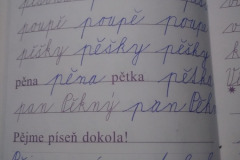 poupě poupě poupě
pěšky pěšky pěšky
pěna pěna pětka
pan Pěkný pan
Pějme píseň dokola!